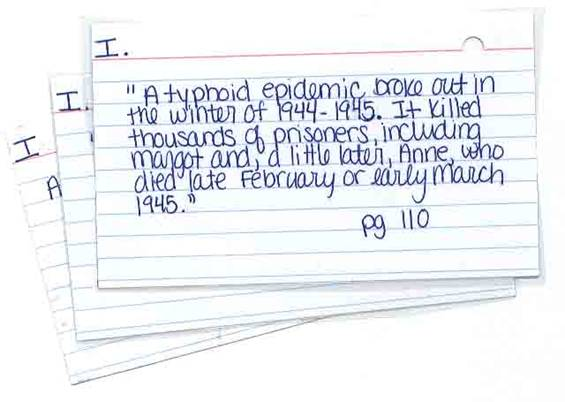 I.
"A typhoid epidemic broke out in
the winter of 1944-1945. It killed
thousands of prisoners, including
margot and, a little later, Anne, who
died late February or early March
1945."
pg 110
I.
"
I
A